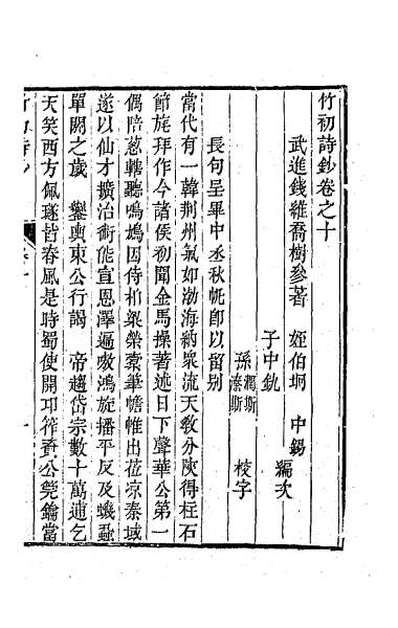 竹初詩鈔卷之十
武進錢維喬樹參著 姪伯坰 中錫 編次
子中釚
孫潤斯 溱斯 校字
長句呈畢中丞秋帆卽以留別
當代有一韓荆州氣如渤海納衆流天敎分陝得柱石
節旄拜作今諸侯初聞金馬操著述日下聲華公第一
偶陪葱轄聽鳴鳩因侍柏梁榮橐筆幨帷出莅凉秦域
遂以仙才擴治術能宣恩澤遍嗷鴻旋播平反及蟣蝨
單閼之歲 鑾輿東公行謁 帝趨岱宗數十萬逋乞
天笑西方佩璲皆春風是時蜀使開邛筰賚公筦鑰當
竹初詩鈔